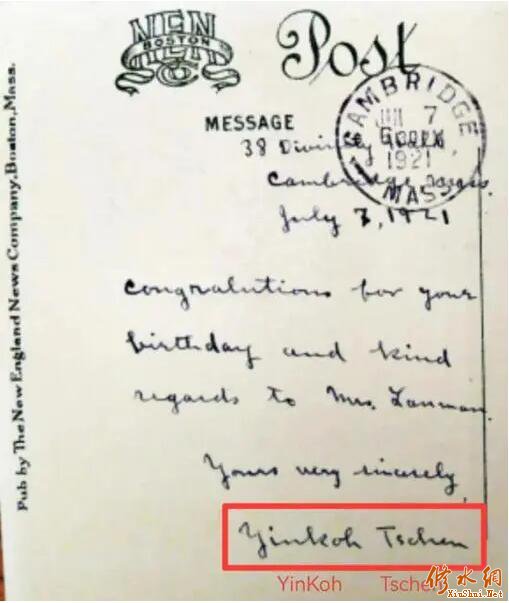 NEN
BOSTON
Co
Post
MESSAGE
CAMBRIDGE
JUL 7
6 00 PM
1921
MASS
38 Divinity Hall,
Cambridge, Mass.
July 7, 1921
Congralutions for your
birthday and kind
regards to Mrs. Lanman.
Yours very sincerely,
Yinkoh Tschen
YinKoh Tschen
Pub by The New England News Company, Boston, Mass.
修水網
XiuShui.Net